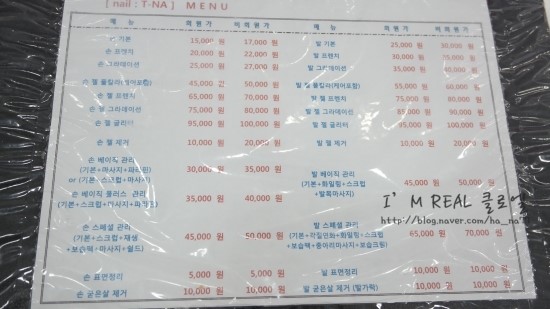 [ nail : T-NA ] MENU
메 뉴 회원가 비회원가 메 뉴 회원가 비회원가
손 기본 15,000 원 17,000 원 발 기본 25,000 원 30,000 원
손 프렌치 20,000 원 22,000 원 발 프렌치 30,000 원 35,000 원
손 그라데이션 25,000 원 27,000 원 발 그라데이션 35,000 원 40,000 원
손 젤 풀칼라(케어포함) 45,000 원 50,000 원 발 젤 풀칼라(케어포함) 55,000 원 60,000 원
손 젤 프렌치 65,000 원 70,000 원 발 젤 프렌치 75,000 원 80,000 원
손 젤 그라데이션 75,000 원 80,000 원 발 젤 그라데이션 85,000 원 90,000 원
손 젤 글리터 95,000 원 100,000 원 발 젤 글리터 95,000 원 100,000 원
손 젤 제거 10,000 원 20,000 원 발 젤 제거 10,000 원 20,000 원
손 베이직 관리
(기본+마사지+파라핀)
or (기본+스크럽+마사지)
30,000 원 35,000 원
발 베이직 관리
(기본+화일링+스크럽
+발목마사지)
45,000 원 50,000 원
손 베이직 플러스 관리
(기본+스크럽+마사지+파라핀)
35,000 원 40,000 원
손 스페셜 관리
(기본+스크럽+재생
+보습팩+마사지+월드)
45,000 원 50,000 원
발 스페셜 관리
(기본+각질연화+화일링+스크럽
+보습팩+종아리마사지+보습크림)
65,000 원 70,000 원
손 표면정리 5,000 원 5,000 원 발 표면정리 10,000 원 10,000 원
손 굳은살 제거 10,000 원 10,000 원 발 굳은살 제거 (발가락) 10,000 원 10,000 원
I'M REAL 클로엘
http://blog.naver.com/ha_na